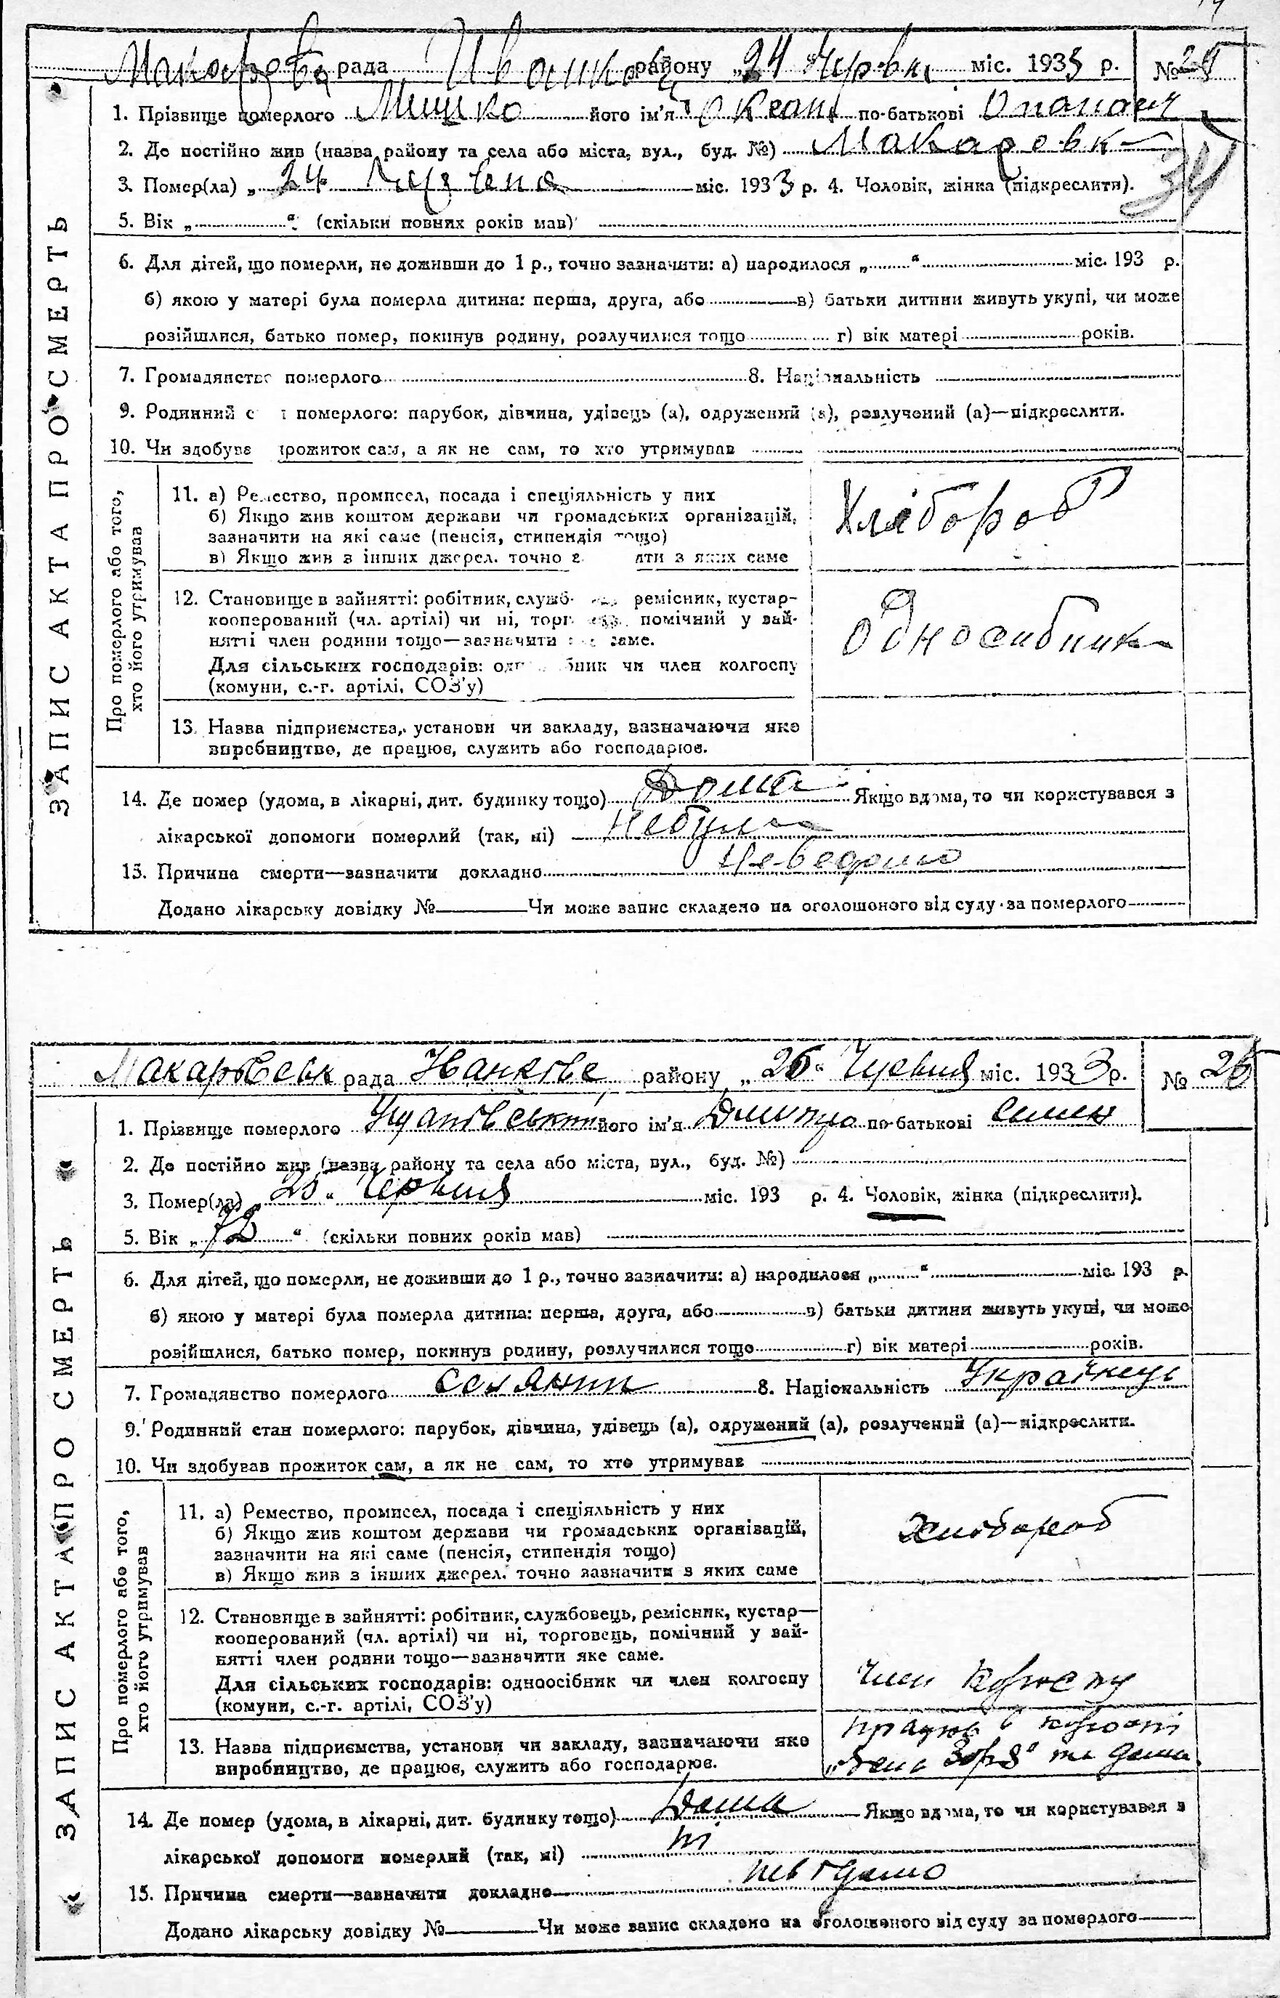 рада Иванков району „24 Червня міс. 1933 р. № 25
1. Прізвище померлого Мишко його ім'я по-батькові
2. Де постійно жив (назва району та села або міста, вул., буд. №) Макаровк
3. Помер(ла) „24 Червня міс. 1933 р. 4. Чоловік, жінка (підкреслити).
34
5. Вік „ “ (скільки повних років мав)
6. Для дітей, що померли, не доживши до 1 р., точно зазначити: а) народилося „ “ міс. 193 р.
б) якою у матері була померла дитина: перша, друга, або в) батьки дитини живуть укупі, чи може
розійшлися, батько помер, покинув родину, розлучилися тощо г) вік матері років.
7. Громадянство померлого 8. Національність
9. Родинний померлого: парубок, дівчина, удівець (а), одружений (а), розлучений (а)—підкреслити.
10. Чи здобував прожиток сам, а як не сам, то хто утримував
ЗАПИС АКТА ПРО СМЕРТЬ
Про померлого або того,
хто його утримував
11. а) Ремество, промисел, посада і спеціяльність у них
б) Якщо жив коштом держави чи громадських організацій,
зазначити на які саме (пенсія, стипендія тощо)
в) Якщо жив з інших джерел. точно з яких саме
Хлібороб
12. Становище в зайнятті: робітник, ремісник, кустар-
кооперований (чл. артілі) чи ні, помічний у зай-
нятті член родини тощо—зазначити саме.
Для сільських господарів: чи член колгоспу
(комуни, с.-г. артілі, СОЗ'у)
Односибник
13. Назва підприємства, установи чи закладу, зазначаючи яке
виробництво, де працює, служить або господарює.
14. Де помер (удома, в лікарні, дит. будинку тощо) Дома Якщо вдома, то чи користувався з
лікарської допомоги померлий (так, ні) Небула
15. Причина смерти—зазначити докладно Неведомо
Додано лікарську довідку № Чи може запис складено на оголошеного від суду за померлого
Макарівськ рада району „25“ Червня міс. 1933 р. № 26
1. Прізвище померлого його ім'я Дмитро по-батькові Семен
2. Де постійно жив (назва району та села або міста, вул., буд. №)
3. Помер(ла) 25“ Червня міс. 193 р. 4. Чоловік, жінка (підкреслити).
5. Вік „72“ (скільки повних років мав)
6. Для дітей, що померли, не доживши до 1 р., точно зазначити: а) народилося „ “ міс. 193 р.
б) якою у матері була померла дитина: перша, друга, або в) батьки дитини живуть укупі, чи може
розійшлися, батько помер, покинув родину, розлучилися тощо г) вік матері років.
7. Громадянство померлого селянин 8. Національність Українець
9. Родинний стан померлого: парубок, дівчина, удівець (а), одружений (а), розлучений (а)—підкреслити.
10. Чи здобував прожиток сам, а як не сам, то хто утримував
ЗАПИС АКТА ПРО СМЕРТЬ
Про померлого або того,
хто його утримував
11. а) Ремество, промисел, посада і спеціяльність у них
б) Якщо жив коштом держави чи громадських організацій,
зазначити на які саме (пенсія, стипендія тощо)
в) Якщо жив з інших джерел. точно зазначити з яких саме
Хлібороб
12. Становище в зайнятті: робітник, службовець, ремісник, кустар—
кооперований (чл. артілі) чи ні, торговець, помічний у зай-
нятті член родини тощо—зазначити яке саме.
Для сільських господарів: одноосібник чи член колгоспу
(комуни, с.-г. артілі, СОЗ'у)
член колгоспу
13. Назва підприємства, установи чи закладу, зазначаючи яке
виробництво, де працює, служить або господарює.
працює в колгоспі
Зоря“ та дома.
14. Де помер (удома, в лікарні, дит. будинку тощо) Дома Якщо вдома, то чи користувався з
лікарської допомоги померлий (так, ні) ні
15. Причина смерти—зазначити докладно невідомо
Додано лікарську довідку № Чи може запис складено на оголошеного від суду за померлого